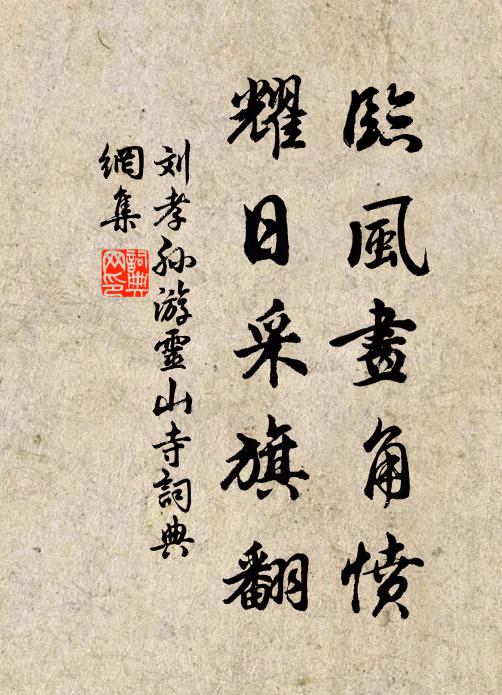 臨風畫角憤
耀日采旗翻
刘孝孙游靈山寺詞典
網集
詞典网印